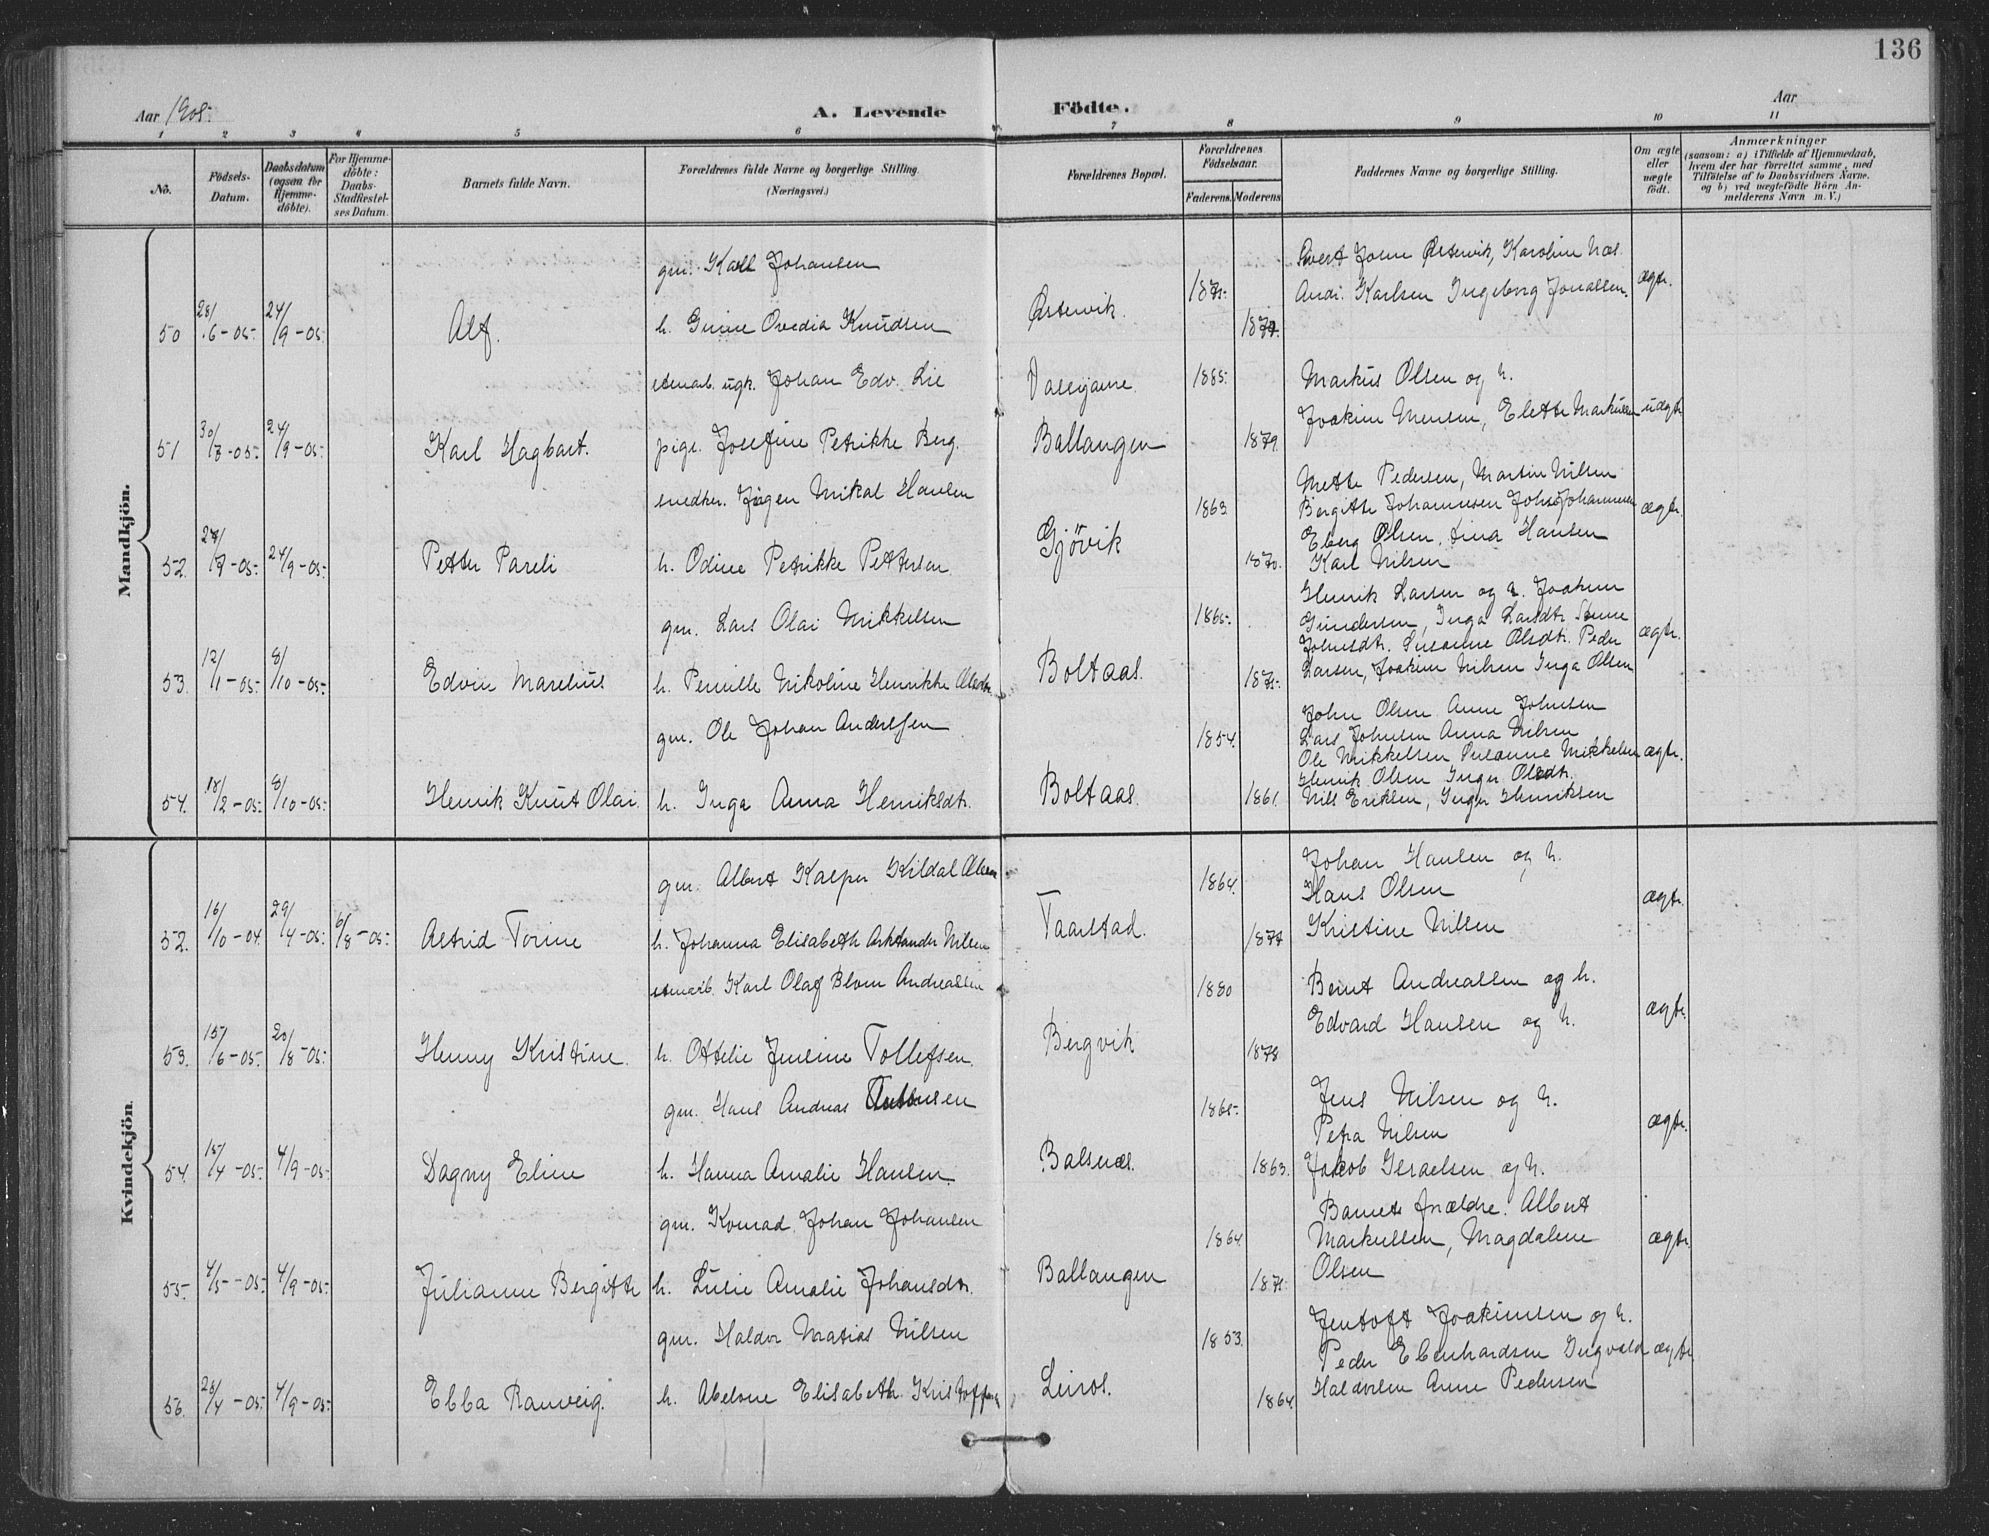 136
Aar 1905.
A. Levende Födte.
Aar
1 2 3 4 5 6 7 8 9 10 11
No.
Födsels-Datum.
Daabsdatum (ogsaa for Hjemme-döbte).
For Hjemme-döbte: Daabs-Stadfæstel-ses Datum.
Barnets fulde Navn.
Forældrenes fulde Navne og borgerlige Stilling.
(Næringsvei.)
Forældrenes Bopæl.
Forældrenes Födselsaar.
Faderens. Moderens.
Faddernes Navne og borgerlige Stilling.
Om ægte eller uægte født.
Anmærkninger
(saasom: a) i Tilfælde af Hjemmedaab, hvem der har forrettet samme, med Tilföielse af to Daabsvidners Navne, og b) ved uægtefödte Börn An-melderens Navn m. V.)
Mandkjön.
gm. Karl Johansen
1875. Sivert Johan Østervik, Karoline Næs
Andr. Karlsen Ingeborg Jonassen. ægte.
50 28/6-05. 24/9-05. Alf. h. Ovedia Knudsen Østervik. 1879.
stenarb. ugk. Johan Edv. Lie 1885. Markus Olsen og h.
Joakim Mensen, Elette Markussen uægte
51 30/7-05. 24/9-05. Karl Hagbart. pige. Josefine Petrikke Berg. Ballangen 1879.
snedker. Jörgen Mikal Hansen 1863. Mette Pedersen, Martin Nilsen
Bergitte Johannesen Johs Johannesen ægte.
Eberg Olsen. Lina Hansen
52. 27/7-05. 24/9-05. Petter Pareli h. Odine Petrikke Pettersen. Gjövik 1870. Karl Nilsen
gm. Lars Olai Mikkelsen 1865. Henrik Larsen og h. Joakim
Gundersen, Inga Larsdtr.
Johnsdtr. Susanne Olsdtr. Peder ægte.
53. 12/1-05. 8/10-05. Edvin Marelius h. Pernille Nikoline Henrikke Olsdtr. Boltaas. 1875. Larsen, Joakim Nilsen Inga Olsen
gm. Ole Johan Anderssen 1854. John Olsen Anne Johnsen
Lars Johnsen Anna Nilsen
Ole Mikkelsen Susanne Mikkelsen ægte.
Henrik Olsen Inger Olsdtr.
54. 18/2-05. 8/10-05. Henrik Knut Olai h. Inga Anna Henriksdtr. Boltaas. 1861. Nils Eriksen, Inger Henriksen
Kvindekjön.
gm. Albert Kasper Kildal Olsen 1864. Johan Hansen og h.
Hans Olsen ægte.
52. 16/10-04. 29/4-05. 6/8-05. Astrid Torine h. Johanna Elisabeth Arktander Nilsen Taarstad. 1874 Kristine Nilsen
stenarb. Karl Olaf Blom Andreassen 1880 Bernt Andreassen og h.
ægte.
53. 15/6-05. 20/8-05. Henny Kristine. h. Ottelie Jensine Tollefsen. Bergvik 1878 Edvard Hansen og h.
gm. Hans Andreas Antonsen 1865. Jens Nilsen og h.
Petra Nilsen ægte.
54. 15/4-05. 4/9-05. Dagny Eline h. Hanna Amalie Hansen. Balsnes. 1863. Jakob Israelsen og h.
gm. Konrad Johan Johansen 1864. Barnets forældre. Albert
Markussen, Magdalene ægte.
55. 4/5-05. 4/9-05. Julianne Bergitte h. Lusie Amalie Johansdtr. Ballangen 1871. Olsen
gm. Haldor Matias Nilsen 1853. Jentoft Joakimsen og h.
Peder Ebenhardsen Ingvald ægte
56. 23/4-05. 4/9-05. Ebba Ranveig. h. Abelone Elisabeth Kristoffers Leiros. 1864. Haldorsen Anne Pedersen